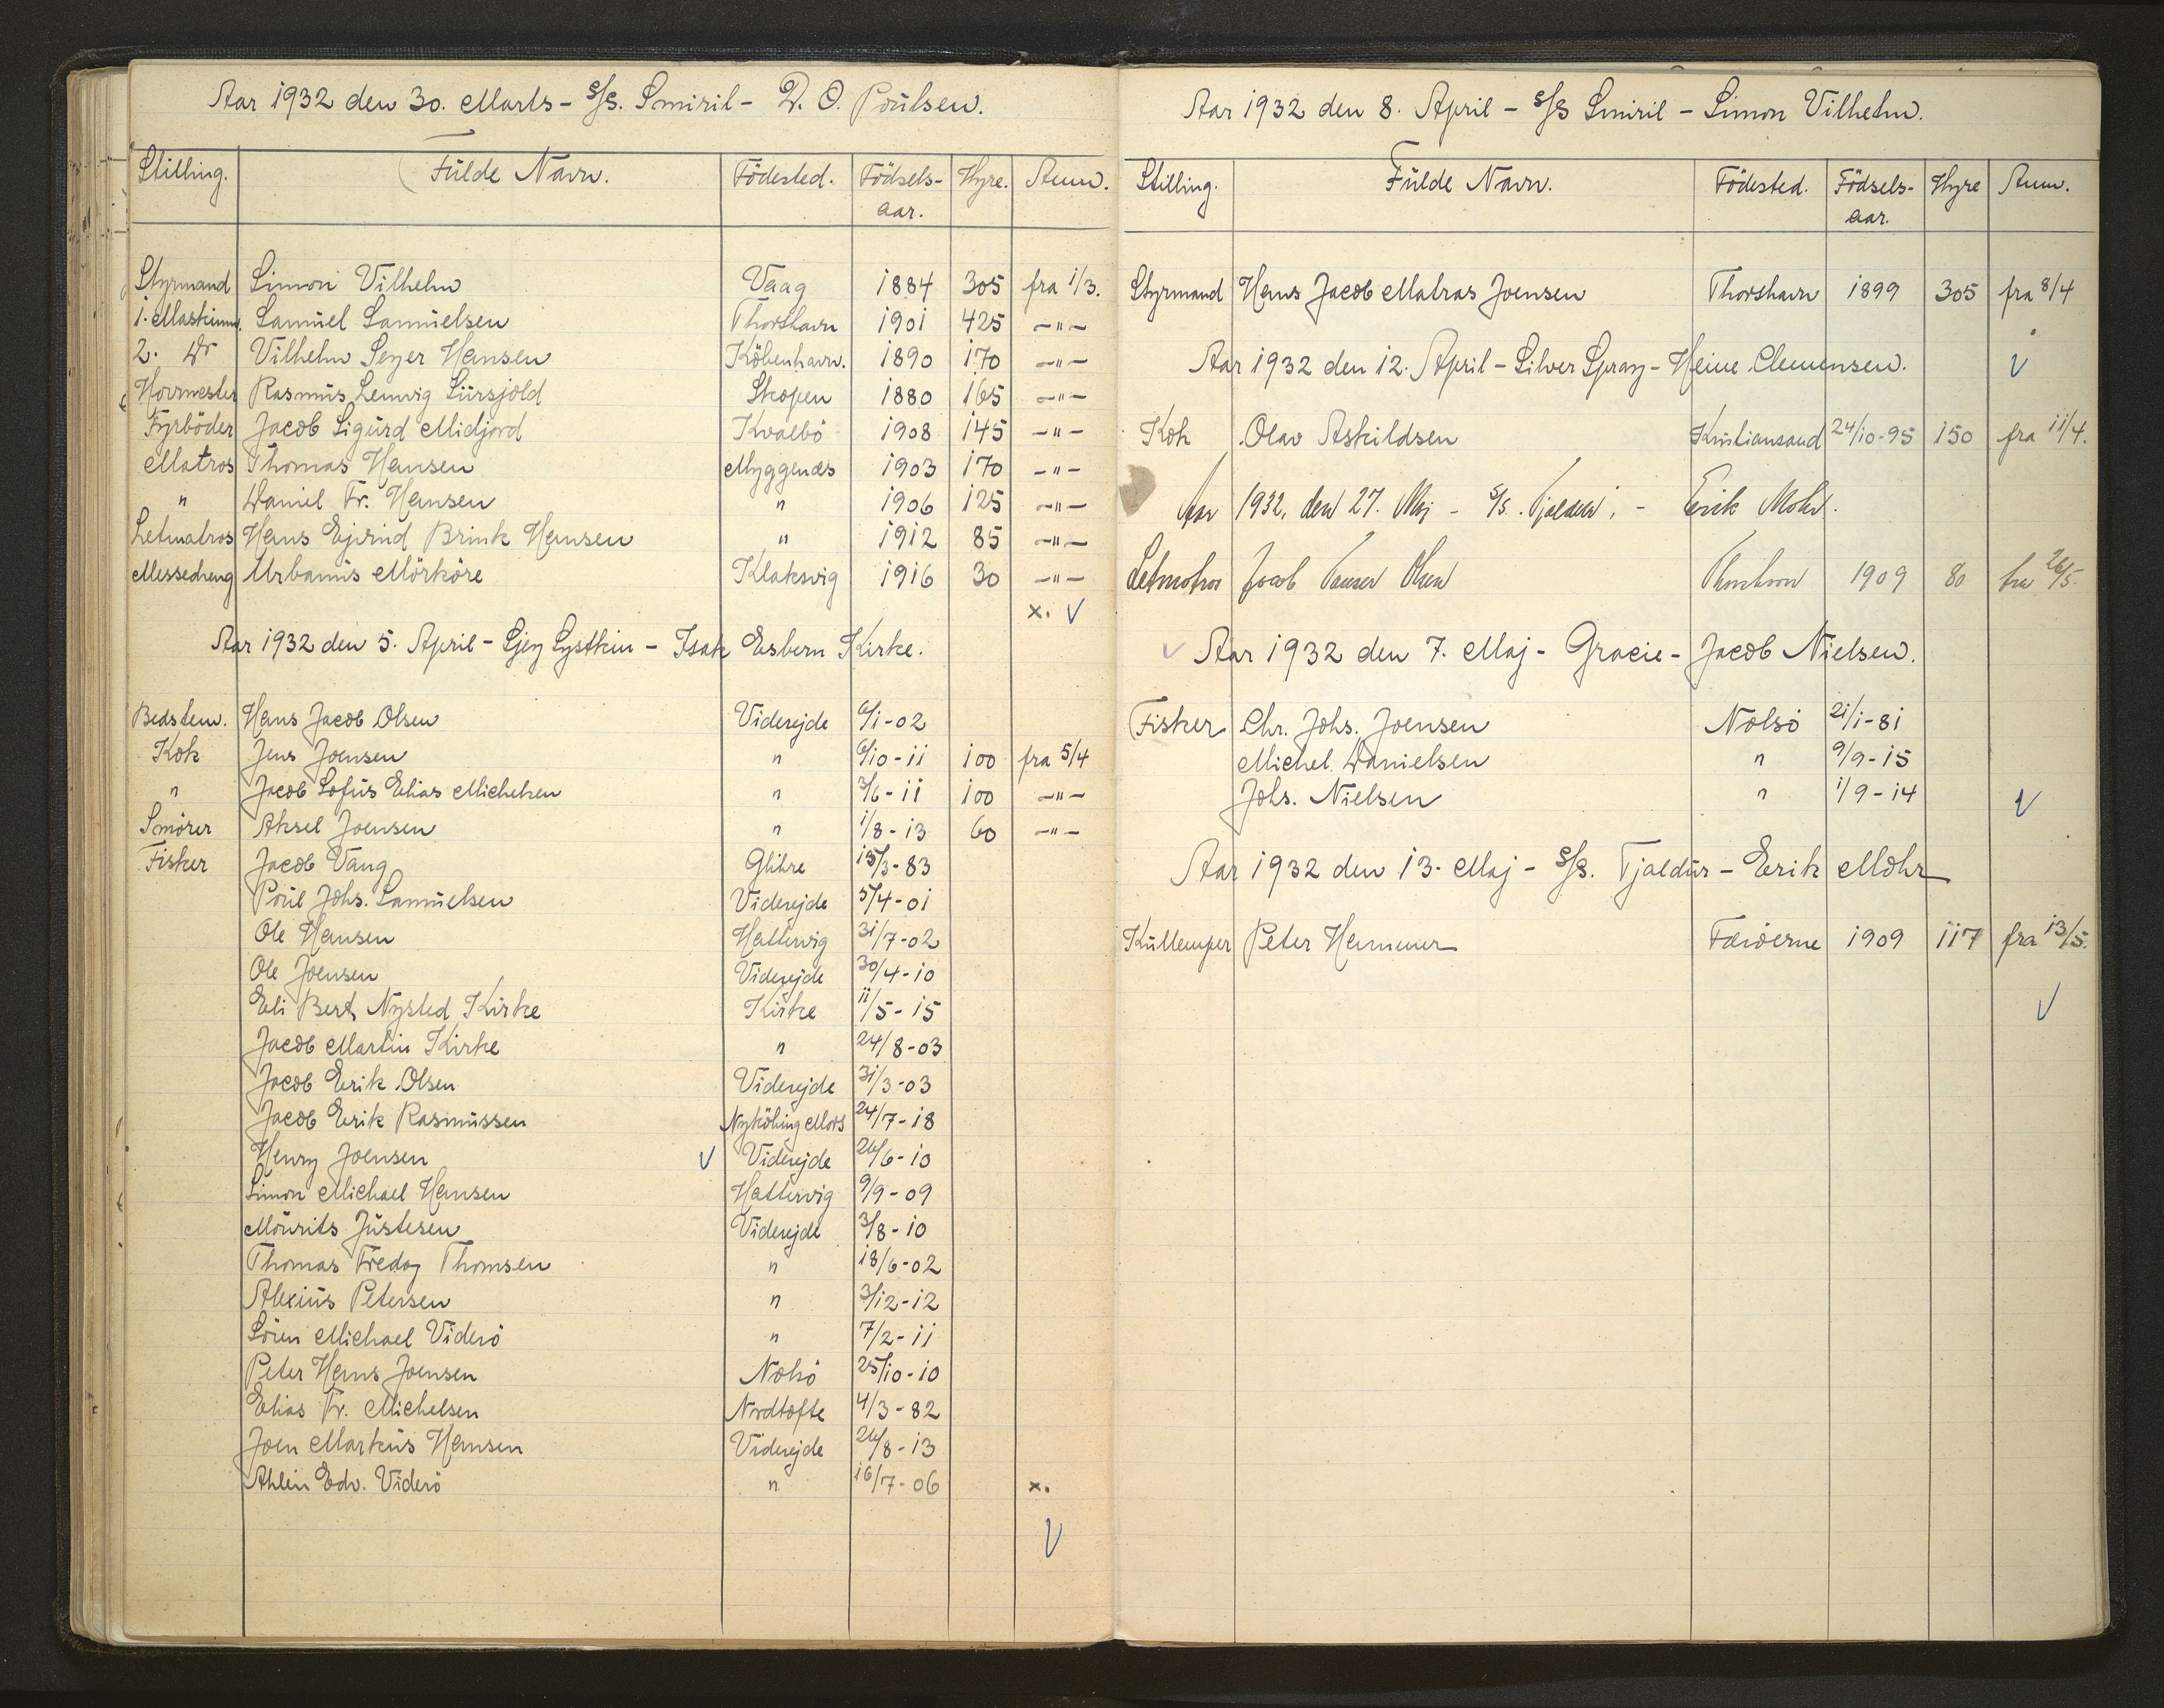 Aar 1932 den 30. Marts - S/S. Smiril - D. O. Poulsen.
Stilling. Fulde Navn. Födested. Födsels- Hyre. Anm.
aar.
Styrmand Simon Vilhelm Vaag 1884 305 fra 1/3.
1. Maskinm. Samuel Samuelsen Thorshavn 1901 425 -"-
2. Do Vilhelm Sejer Hansen Köbenhavn. 1890 170 -"-
Hovmester Rasmus Lenvig Sürsjold Skopen 1880 165 -"-
Fyrböder Jacob Sigurd Midjord Kvalbö 1908 145 -"-
Matros Thomas Hansen Myggenæs 1903 170 -"-
" Daniel Fr. Hansen " 1906 125 -"-
Letmatros Hans Ejvind Brink Hansen " 1912 85 -"-
Messedreng Urbanus Mörköre Klaksvig 1916 30 -"-
x. V
Aar 1932 den 5. April - Sjey Systkin - Isak Esbern Kirke.
Bedstem. Hans Jacob Olsen Viderejde 6/1-02
Kok Jens Joensen " 6/10-11 100 fra 5/4
" Jacob Sofus Elias Michelsen " 3/6-11 100 -"-
Smörer Aksel Joensen " 1/8-13 60 -"-
Fisker Jacob Vang Glibre 15/3-83
Poul Johs. Samuelsen Viderejde 5/4-01
Ole Hansen Hattervig 31/7-02
Ole Joensen Viderejde 30/4-10
Eli Bert Nysted Kirke Kirke 11/5-15
Jacob Martin Kirke " 24/8-03
Jacob Erik Olsen Viderejde 31/3-03
Jacob Erik Rasmussen Nyköbing Mors 24/7-18
Henry Joensen V Viderejde 26/6-10
Simon Michael Hansen Hattervig 9/9-09
Mourits Justesen Viderejde 3/8-10
Thomas Fredag Thomsen " 18/6-02
Alexius Petersen " 3/12-12
Sören Michael Viderö " 7/2-11
Peter Hans Joensen Nolsö 25/10-10
Elias Fr. Michelsen Nordtofte 4/3-82
Joen Markus Hansen Viderejde 26/8-13
Ahlein Edv. Viderö " 16/7-06 x.
V
Aar 1932 den 8. April - S/S Smiril - Simon Vilhelm.
Stilling. Fulde Navn. Födested. Födsels- Hyre Anm.
aar.
Styrmand Hans Jacob Matras Joensen Thorshavn 1899 305 fra 8/4
Aar 1932 den 12. April - Silver Spray - Heine Clemensen. V
Kok Olav Askildsen Kristiansand 24/10-95 150 fra 11/4.
Aar 1932, den 27. Maj - S/S. Tjaldur, - Erik Mohr.
Letmatros Jacob Olsen Thorshavn 1909 80 fra 26/5.
V Aar 1932 den 7. Maj - Gracie - Jacob Nielsen.
Fisker Chr. Johs. Joensen Nolsö 21/1-81
Michel Danielsen " 9/9-15
Johs. Nielsen " 1/9-14 V
Aar 1932 den 13. Maj - S/S. Tjaldur - Erik Mohr
Kullemper Peter Hammer Færöerne 1909 117 fra 13/5.
V